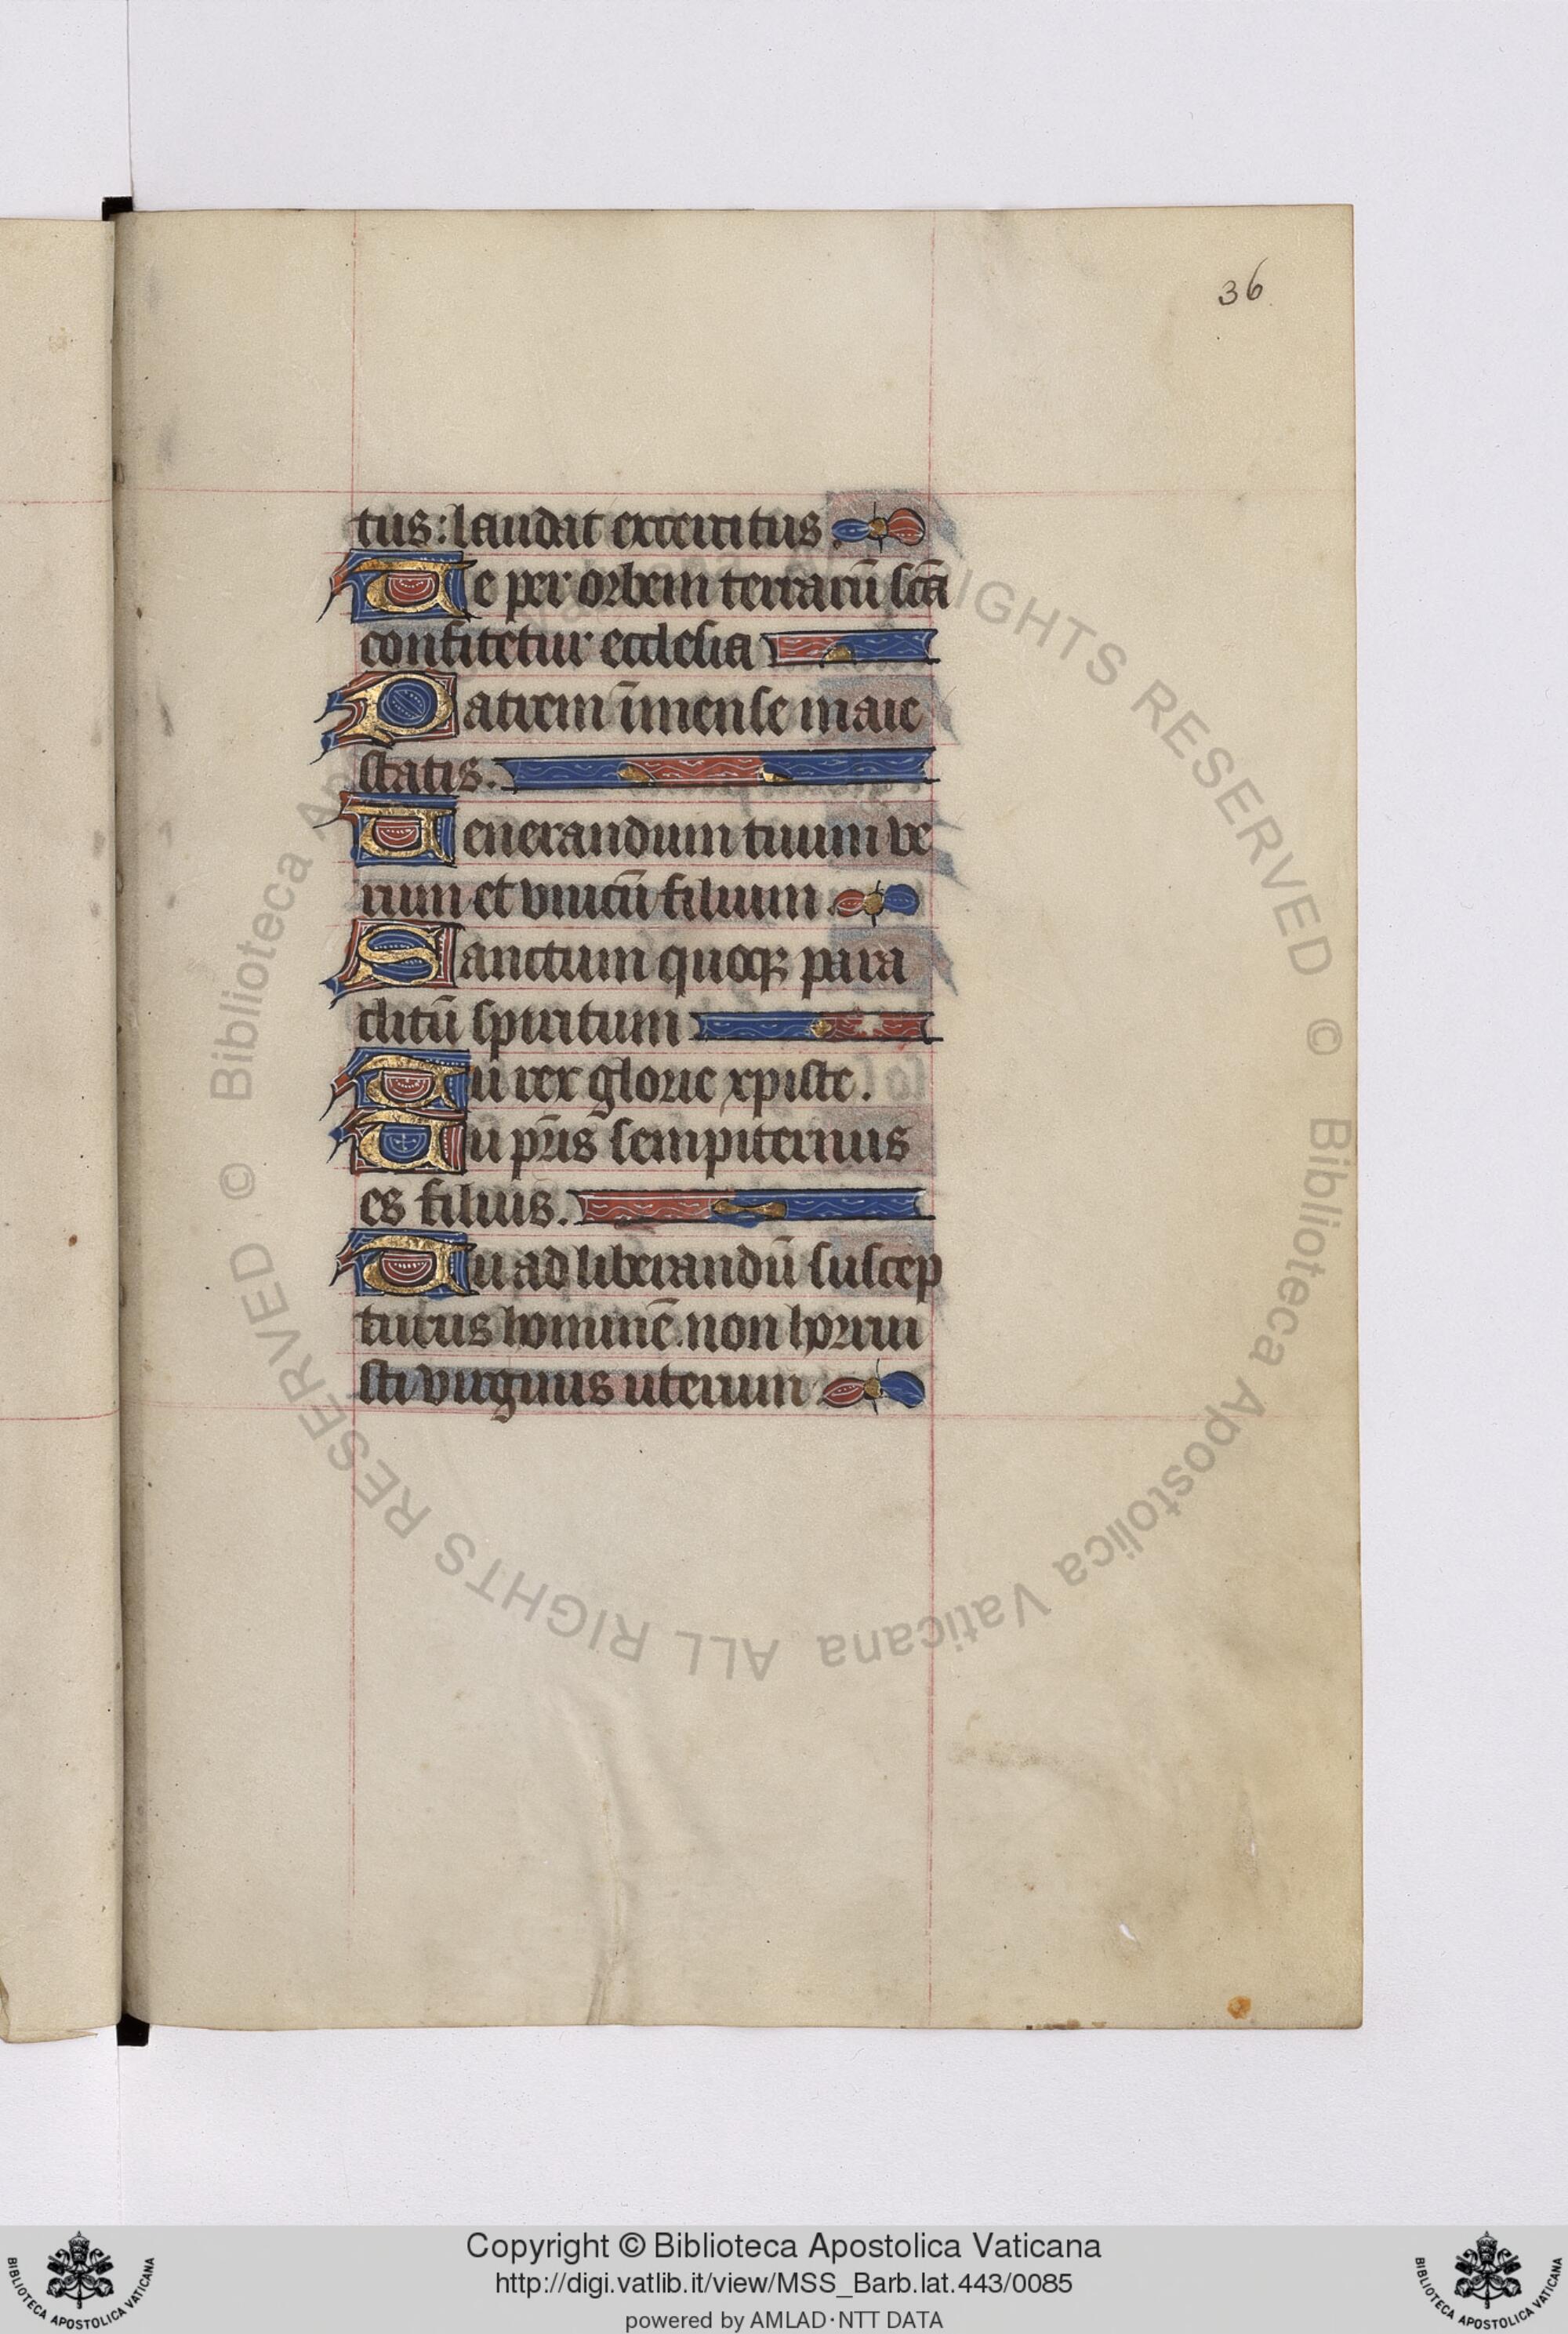 36
tus: laudat exercitus.
Te per orbem terrarū scā
confitetur ecclesia
Patrem īmense maie
statis.
Uenerandum tuum ve
rum et vnicū filium.
Sanctum quoqꝫ para
clitū spiritum
Tu rex glorie xpiste.
Tu pr̄is sempiternus
es filius.
Tu ad liberandū suscep
turus hominē. non horrui
sti virginis uterum
© Biblioteca Apostolica Vaticana ALL RIGHTS RESERVED
Copyright © Biblioteca Apostolica Vaticana
http://digi.vatlib.it/view/MSS_Barb.lat.443/0085
powered by AMLAD·NTT DATA
BIBLIOTECA APOSTOLICA VATICANA
BIBLIOTECA APOSTOLICA VATICANA